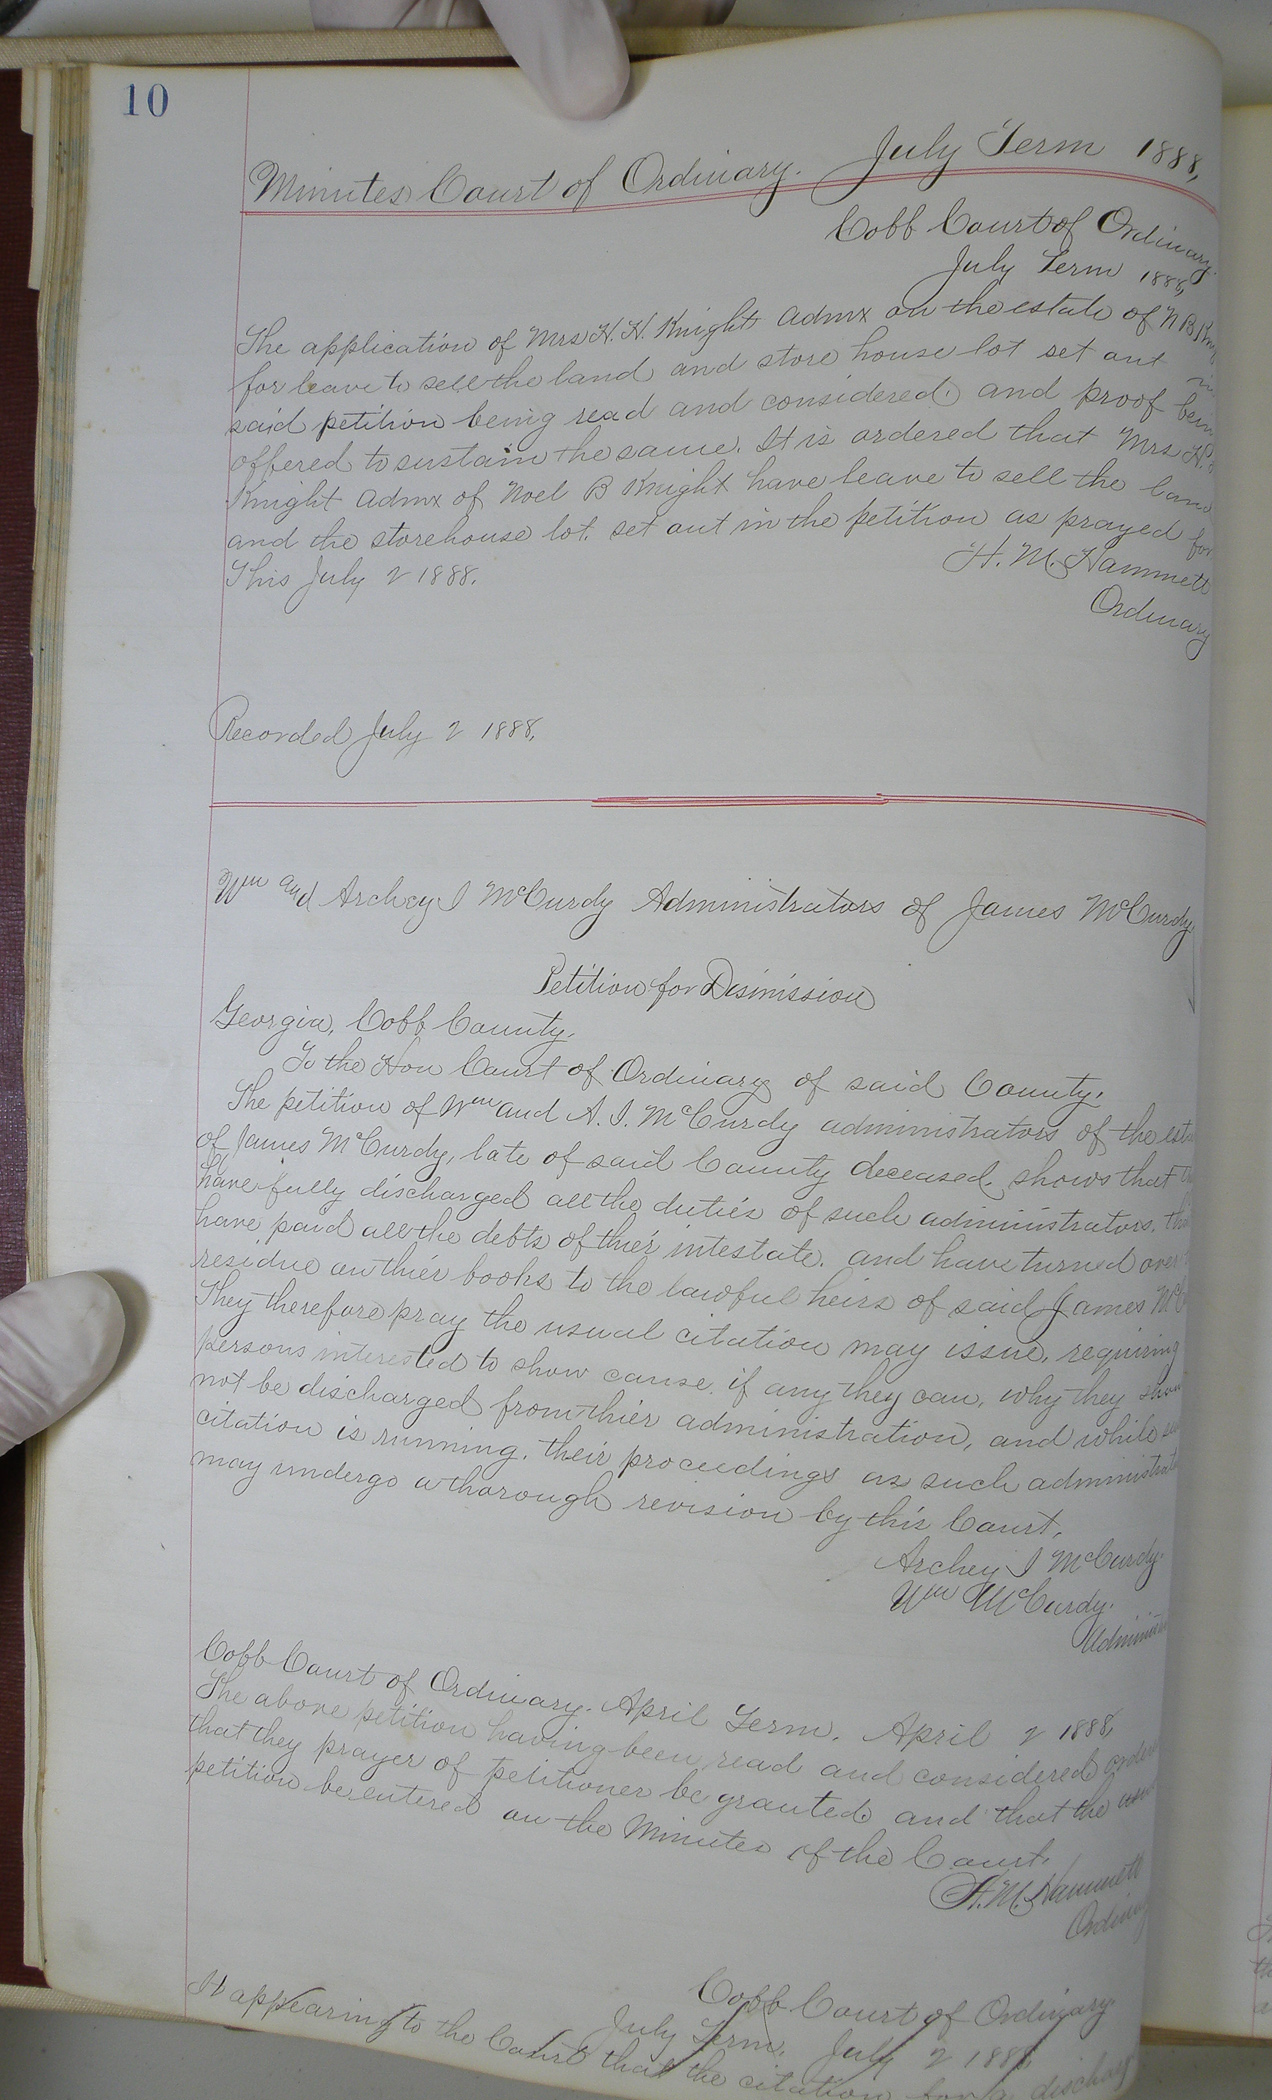 10
Minutes Court of Ordinary. July Term 1888,
Cobb Court of Ordinary.
July Term 1888,
The application of Mrs H. H. Knight Admx on the estate of N B
for leave to sell the land and store house lot set out in
said petition being read and considered, and proof being
offered to sustain the same. It is ordered that Mrs H.
Knight Admx of Noel B Knight have leave to sell the land
and the storehouse lot. set out in the petition as prayed for
This July 2 1888.
H. M. Hammett
Ordinary
Recorded July 2 1888,
Wm and Archey I McCurdy Administrators of James McCurdy
Petition for Dismission
Georgia, Cobb County.
To the Hon Court of Ordinary of said County.
The petition of Wm and A. I. McCurdy administrators of the
of James McCurdy, late of said County deceased, shows that
have fully discharged all the duties of such administrators,
have paid all the debts of thier intestate. and have turned over
residue on thier books to the lawful heirs of said James
They therefore pray the usual citation may issue, requiring
persons interested to show cause, if any they can, why they
not be discharged from thier administration, and while
citation is running, their proceedings as such
may undergo a thorough revision by this Court.
Archey I McCurdy.
Wm McCurdy.
Cobb Court of Ordinary. April Term, April 2 1888,
The above petition having been read and considered
that they prayer of petitioner be granted and that the
petition be entered on the Minutes of the Court.
H. M. Hammett
Cobb Court of Ordinary.
July Term, July 2 1888
It appearing to the Court that the citation for a